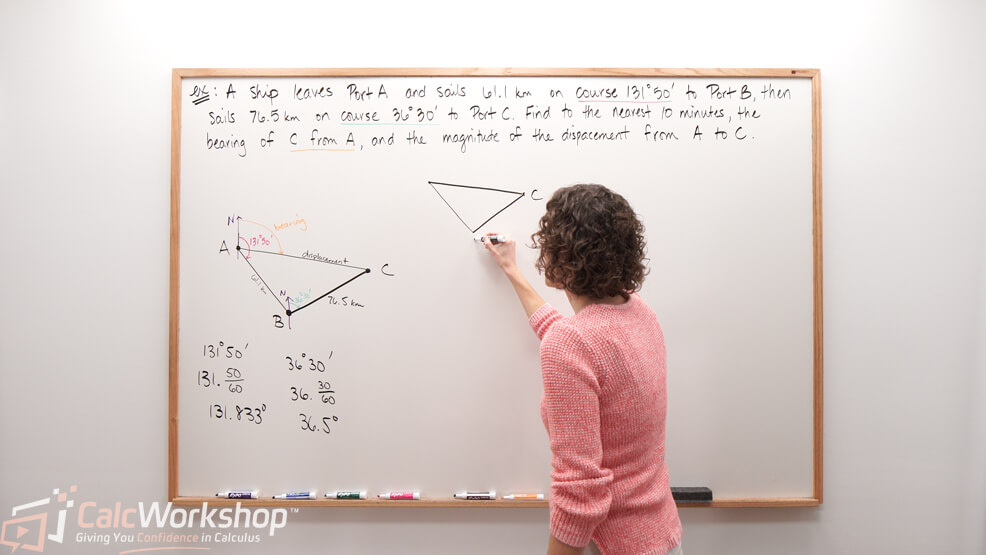 ex: A ship leaves Port A and sails 61.1 km on course 131°50' to Port B, then
sails 76.5 km on course 36°30' to Port C. Find to the nearest 10 minutes, the
bearing of C from A, and the magnitude of the dispacement from A to C.
C
N
bearing
131°50'
A
displacement
C
61.1 km
N
36°30'
76.5 km
B
131°50'
36°30'
131. 50/60
36. 30/60
131.833°
36.5°
CalcWorkshop™
Giving You Confidence in Calculus